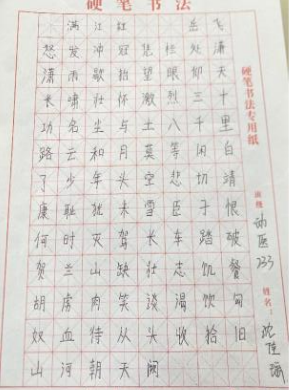 硬笔书法
满江红 岳飞
怒发冲冠凭栏处潇
潇雨歇抬望眼仰天
长啸壮怀激烈三十
功名尘与土八千里
路云和月莫等闲白
了少年头空悲切靖
康耻犹未雪臣子恨
何时灭驾长车踏破
贺兰山缺壮志饥餐
胡虏肉笑谈渴饮匈
奴血待从头收拾旧
山河朝天阙
硬笔书法专用纸
班级 动医233
姓名: